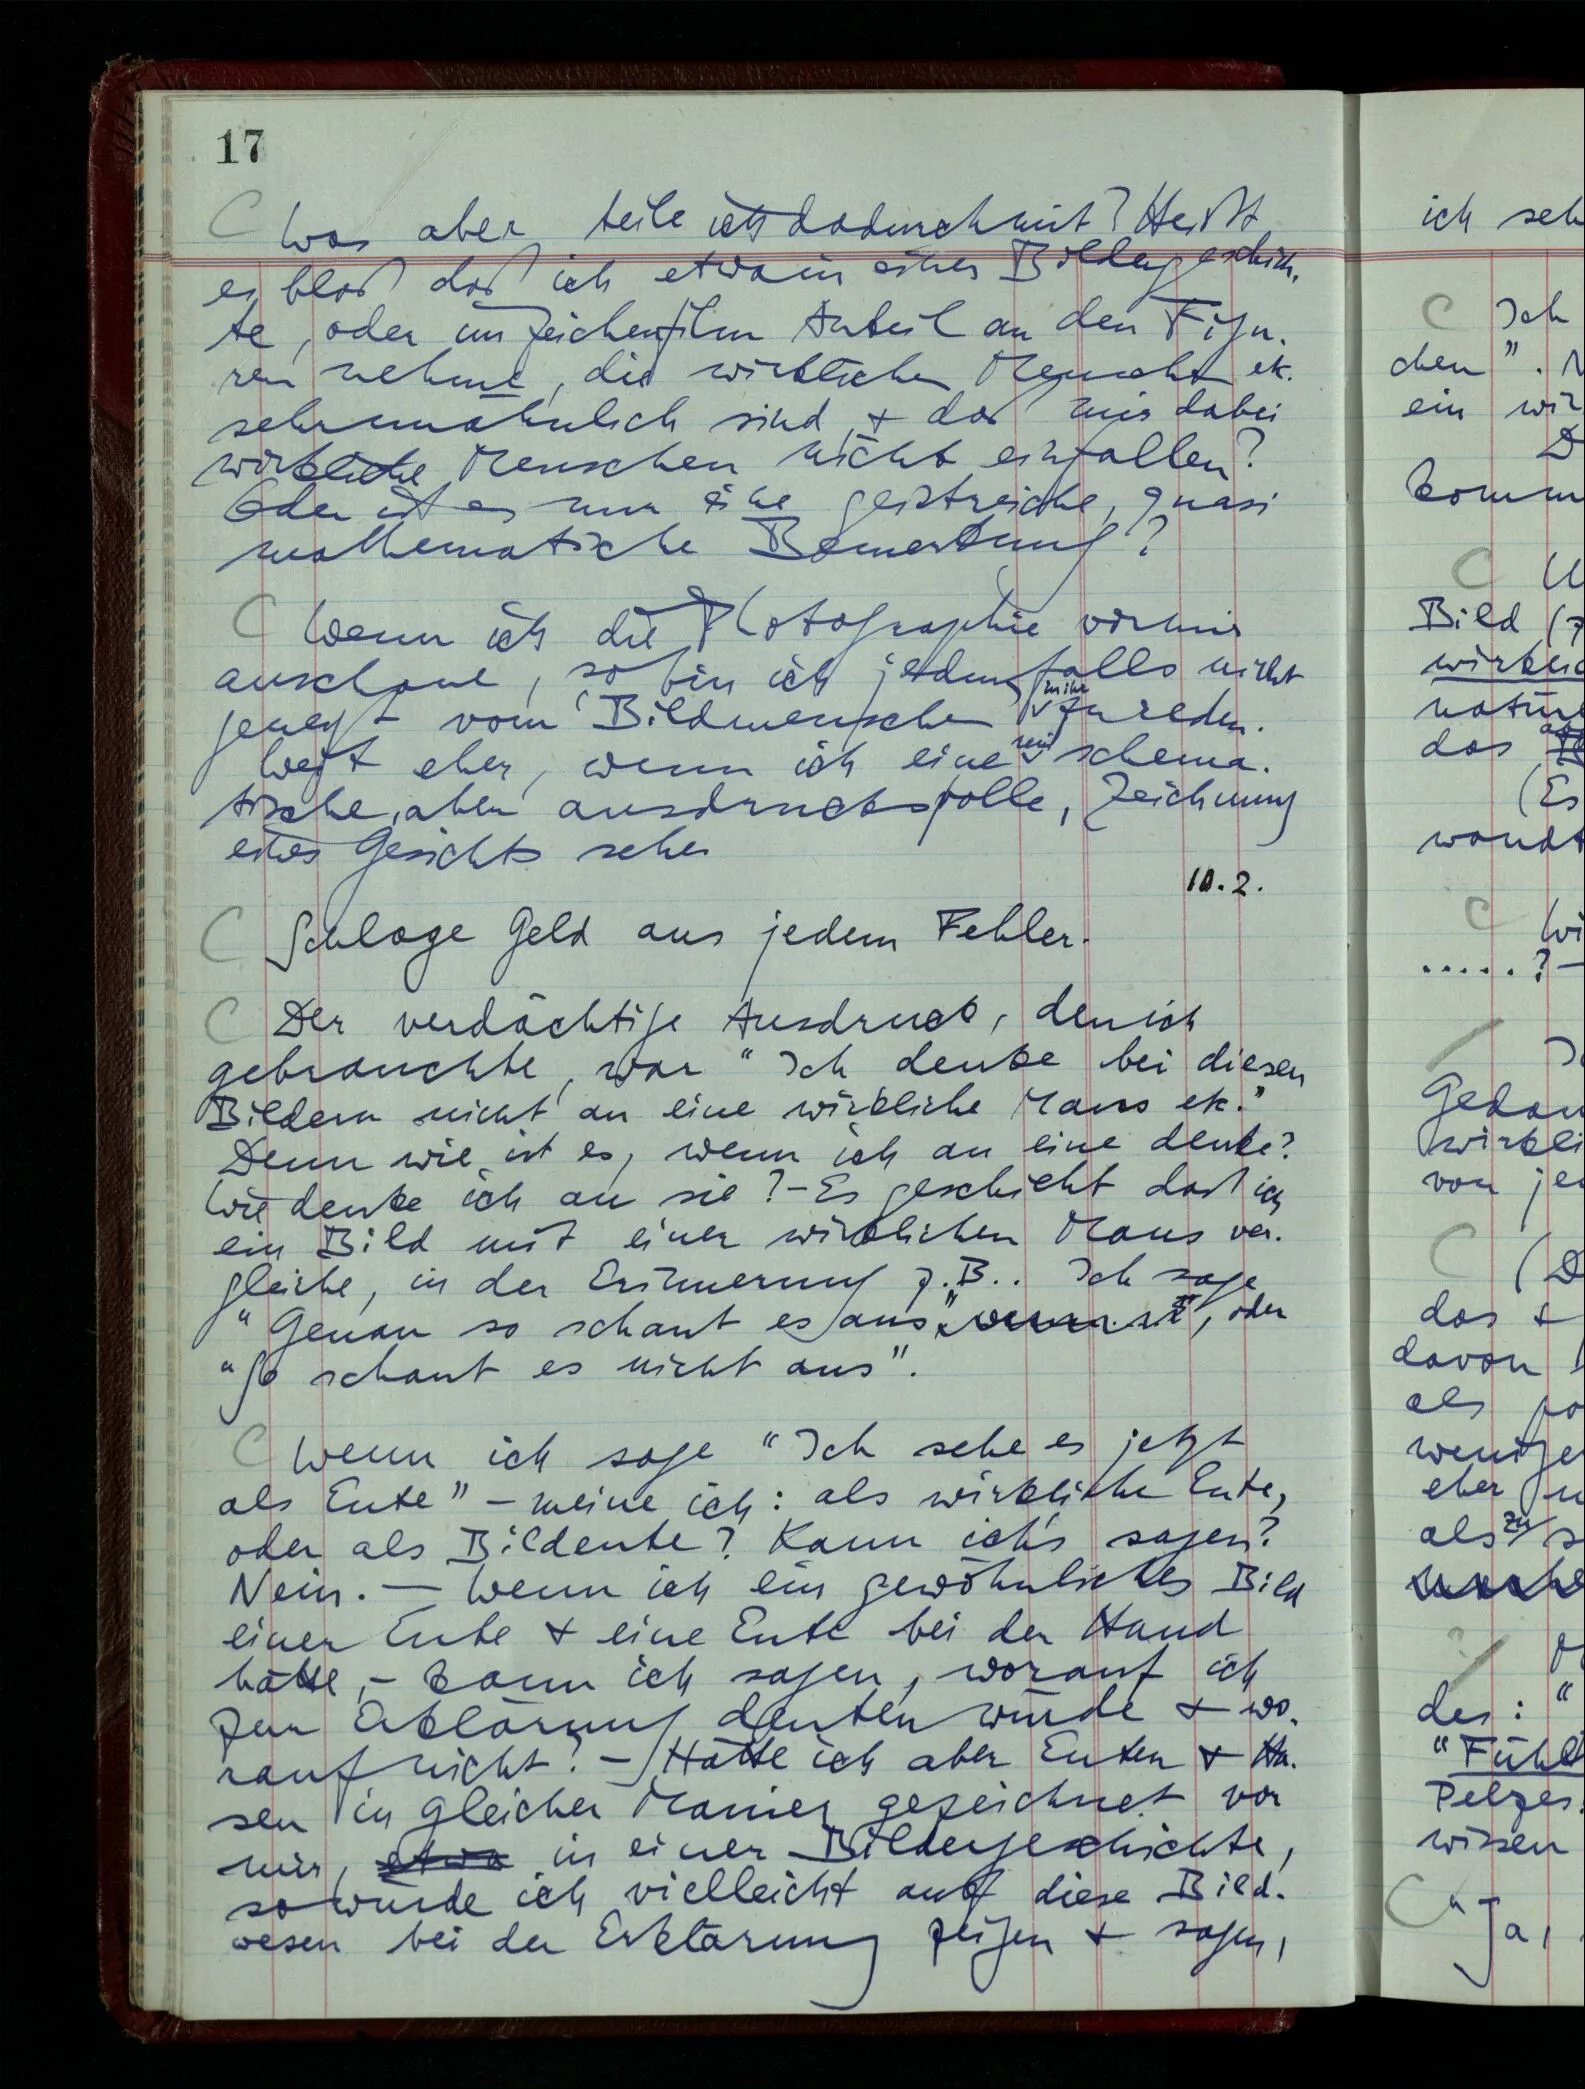 17
C Was aber teile ich dadurch mit? Heißt
es bloß daß ich etwa in einer Bildergeschich-
te, oder im Zeichenfilm Anteil an den Figu-
ren nehme, die wirklichen Menschen etc.
sehr unähnlich sind, + daß mir dabei
wirkliche Menschen nicht einfallen?
Oder ist es nur eine geistreiche, quasi
mathematische Bemerkung?
C Wenn ich die Photographie vor mir
anschaue, so bin ich jedenfalls nicht
geneigt vom 'Bildmenschen' zu reden.
Weit eher, wenn ich eine schema-
tische, aber ausdrucksvolle, Zeichnung
eines Gesichts sehe
10.2.
C Schlage Geld aus jedem Fehler.
C Der verdächtige Ausdruck, den ich
gebrauchte, war "Ich denke bei diesen
Bildern nicht an eine wirkliche Maus etc."
Denn wie ist es, wenn ich an eine denke?
Wie denke ich an sie? – Es geschieht daß ich
ein Bild mit einer wirklichen Maus ver-
gleiche, in der Erinnerung z.B.. Ich sage
"Genau so schaut es aus", oder
"So schaut es nicht aus".
C Wenn ich sage "Ich sehe es jetzt
als Ente" – meine ich: als wirkliche Ente,
oder als Bildente? Kann ich's sagen?
Nein. – Wenn ich ein gewöhnliches Bild
einer Ente + eine Ente bei der Hand
hätte, – kann ich sagen, worauf ich
zur Erklärung deuten würde + wo-
rauf nicht? – Hätte ich aber Enten + Ha-
sen in gleicher Manier gezeichnet vor
mir, etwa in einer Bildergeschichte,
so würde ich vielleicht auf diese Bild-
wesen bei der Erklärung zeigen + sagen,
ich seh
C Ich
chen". N
ein wir
D
komm
C W
Bild (z
wirklic
natür
das
(Es
wandt
C Wi
.....? –
Gedan
wirkli
von je
C (D
das +
davon
als po
weniger
eher
als zu s
der: "
"Fühl
Pelzes.
wissen
C "Ja,